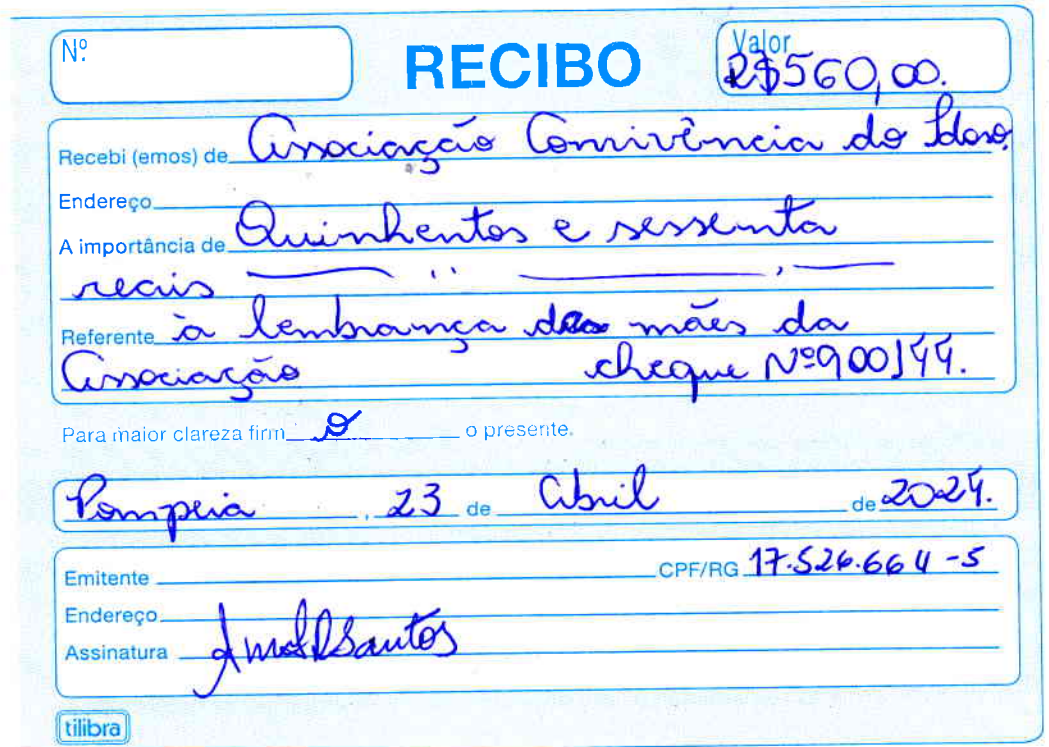 Nº RECIBO Valor R$560,00.
Recebi (emos) de Associação Convivência do Idoso.
Endereço
A importância de Quinhentos e sessenta
reais
Referente à lembrança das mães da
Associação cheque Nº900144.
Para maior clareza firm o o presente.
Pompeia, 23 de Abril de 2024.
Emitente CPF/RG 17.526.664-5
Endereço
Assinatura
tilibra